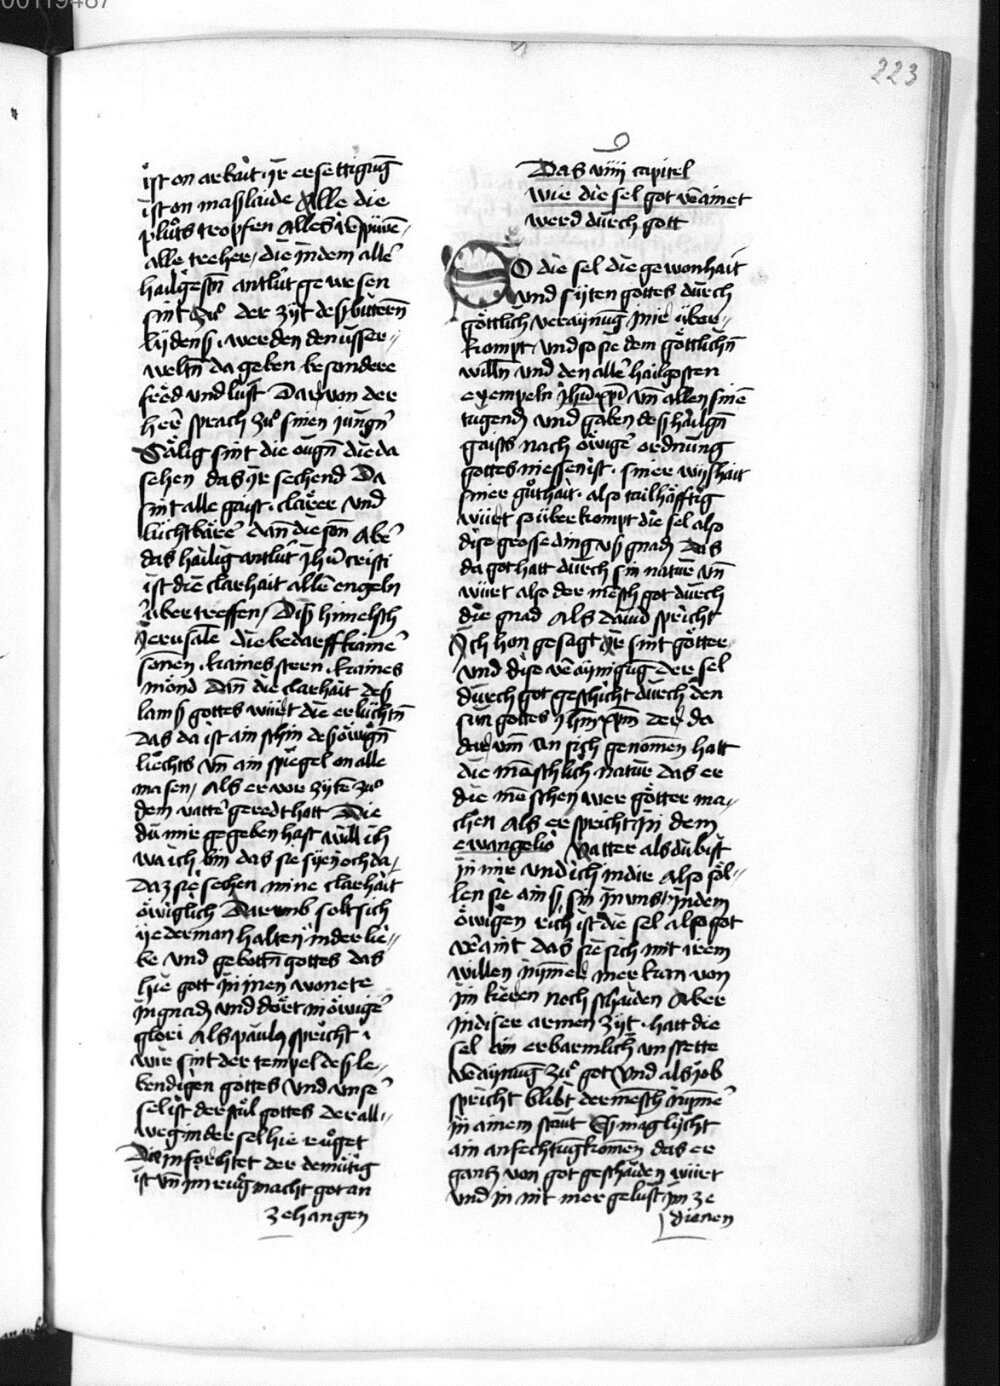 223
ist on arbait · ir ersettigūg
ist on maßlaide Alle die
plůts tropfen Alles verspüwē /
alle treher / die in dem alle͛
hailgestn̄ antlüt gewesen
sint zů der zÿt deß bitterñ
lÿdenß · werden den usser //
weltn̄ da geben besondere
frëd und lust Dar von der
her͛ sprach zů sinen jüngn̄
Sälig sint die ougn̄ die da
sehen das ir sechend Da
sint alle gaist · claŕer und
lüchtbäre͛ dan̄ die son̄ Abe͛
das hailig antlüt Jhū cristi
ist die clarhait allē engeln
übertreffen / Diß himelsch
Jerusalē die bedarff kaine͛
son̄en · kaines stern · kaines
mönd Dan̄ die clarhait deß
lamß gottes würt die erlüchtn̄
das da ist ain schin deß öwign̄
liechts vn̄ ain spiegel on alle
masen / Als er vor zÿtē zů
dem vatte͛ geredt hatt Die
du mir gegeben hast will ich
wa ich bin das sie syen och da /
Daz sie sechen mine clarhait
öwiglich Darumb solt sich
ÿederman halten in der lie //
be und gebottn̄ gottes das
hie gott in inen wonete
in gnadn̄ und dört in öwige͛
glori Als paulꝯ spricht ·
wir sint der tempel deß le //
bendigen gottes und unse͛
sel ist der stůl gottes der all //
weg in der sel hie růget
Die in förchtet der demütig
ist vn̄ im rüg macht got an
zehangen
9
Das viiii capitel
wie die sel got v͛ainet
werd durch gott
SO die sel die gewonhait
und sÿten gottes durch
göttlich veraÿnūg mir über //
kompt · und so sie dem göttlichn̄
willn̄ und den alle͛ hailgosten
exempeln jhū xp̄i vn̄ allen sinē
tugendn̄ und gaben deß hailgn̄
gaists nach öwige͛ ordnung
gottes niessen ist · siner wißhait
siner gůthait · also tailhäfftig
würt so überkompt die sel also
dise grosse ding uß gnadn̄ Das
da got hatt durch sin natur vn̄
würt also der mēsch got durch
die gnad Als dauid spricht
Ich hon gesagt ir sint götter
und dise v͛aÿnigūg der sel
durch got geschicht durch den
sun gottes jhm̄ xp̄m der da
dar um̄ an sich genomen hatt
die mēschlich natur das er
die mēschen wer götter ma //
chen als er spricht in dem
ewangelio Vatter als du bist
in mir und ich in dir Also söl //
len sie ainß sin in uns / in dem
öwigen rich ist die sel also got
v͛aint das sie sich mit irem
willen nÿmer mer kan von
im këren noch schaiden Aber
in diser armen zÿt · hatt die
sel ain erbarmlich unstette
v͛aÿnūg zů got Und als job
spricht blibt der mēsch nim̄e͛
in ainem stāt Es mag lÿcht
ain anfechtūg komen das er
gantz von got geschaiden würt
und in nit mer gelust im ze
dienen